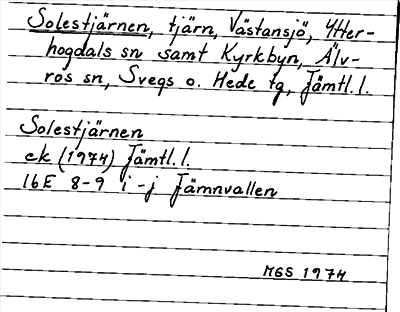 Solestjärnen, tjärn, Västansjö, Ytter-
hogdals sn samt Kyrkbyn, Älv-
ros sn, Svegs o. Hede tg, Jämtl. l.
Solestjärnen
ek (1974) Jämtl. l.
16E 8-9 i-j Jämnvallen
MGS 1974